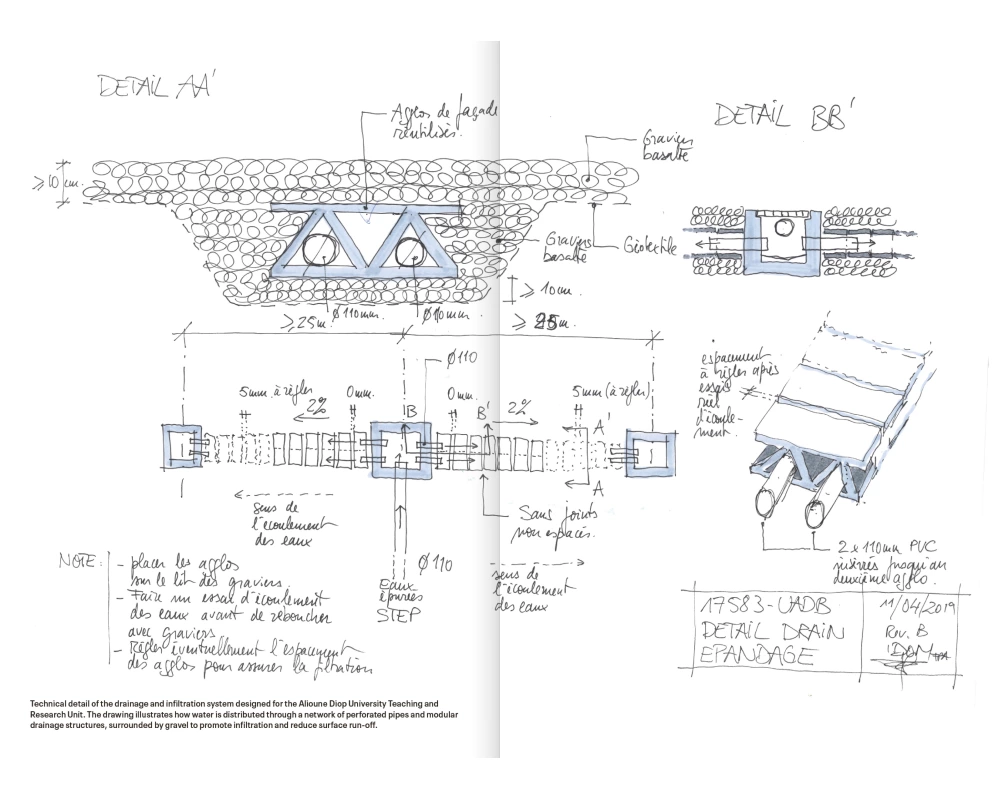 DETAIL AA'
Agglos de façade
réutilisés.
Graviers
basalte
≥ 10 cm.
Graviers
basalte
Géotextile
≥ 10cm.
Ø110mm.
Ø110mm.
≥ 25m.
≥ 25m.
DETAIL BB'
Ø110
5mm à régler
0mm.
0mm.
5mm (à régler)
2%
B
B'
2%
A'
A
sens de
l'écoulement
des eaux
Sans joints
non espacés.
Ø110
Eaux
épurées
STEP
sens de
l'écoulement
des eaux
espacement
à régler après
essais
réel
d'écoule-
ment.
2 x 110mm PVC
insérés jusqu'au
deuxième agglo.
NOTE:
- placer les agglos
sur le lit des graviers.
- Faire un essai d'écoulement
des eaux avant de reboucher
avec graviers
- Régler éventuellement l'espacement
des agglos pour assurer la filtration
17583-UADB
DETAIL DRAIN
EPANDAGE
11/04/2019
Rev. B
Technical detail of the drainage and infiltration system designed for the Alioune Diop University Teaching and
Research Unit. The drawing illustrates how water is distributed through a network of perforated pipes and modular
drainage structures, surrounded by gravel to promote infiltration and reduce surface run-off.